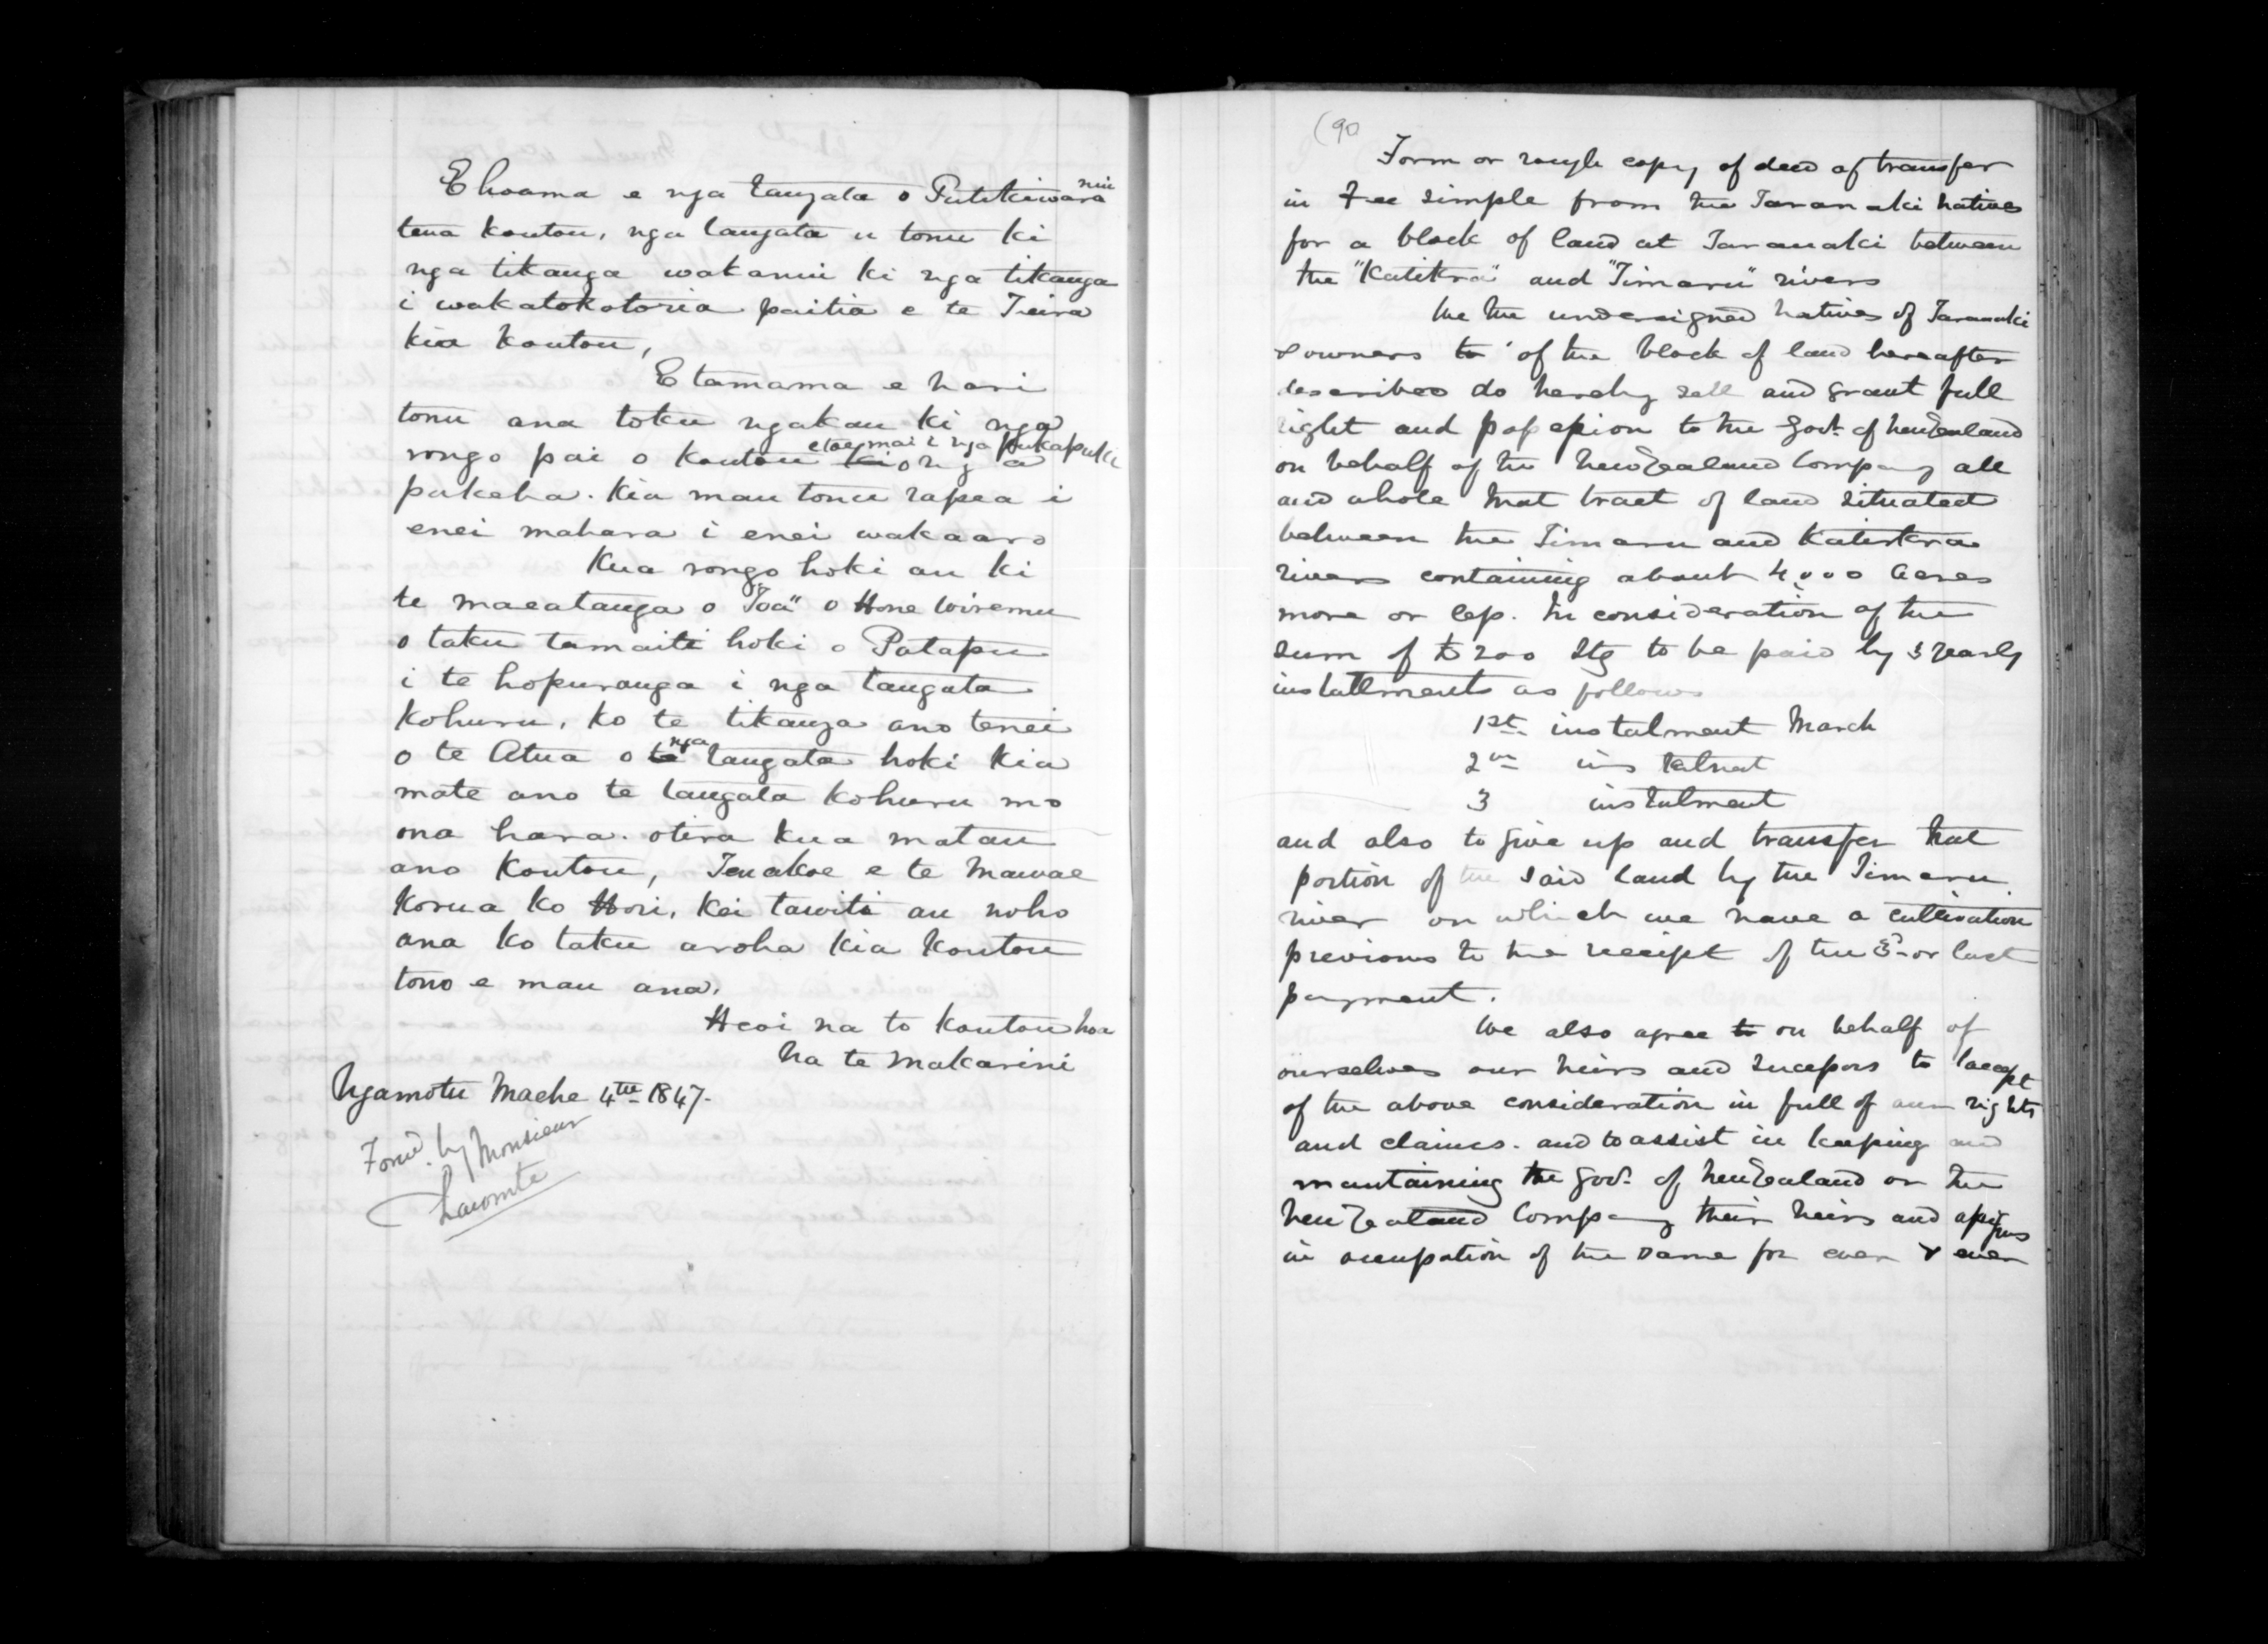 E hoama e nga tangata o Putikiwara
nui
tena koutou, nga tangata u tonu ki
nga tikanga wakamui ki nga tikanga
i wakatokotoria paitia e te Teira
kia koutou,
E tamama e hari
tonu ana toku ngakau ki nga
rongo pai o koutou ki o nga
etae mai i nga pukapuka
pakeha. Kia mau tonu rapea i
enei mahara i enei wakaaro
Kua rongo hoki au ki
te maeatanga o "Toa" o Hone Wiremu
o taku tamaiti hoki o Patapu
i te hopuranga i nga tangata
Kohuru, ko te tikanga ano tenei
o te Atua o te nga tangata hoki kia
mate ano te tangata kohuru mo
ona hara. otira kua matau
ano koutou, Tenakoe e te Mawae
Korua ko Hori, Kei tawiti au noho
ana ko taku aroha kia koutou
tono e mau ana.
Heoi na to koutou hoa
Na te Makarini
Ngamotu Mache 4th 1847.
Forwd. by Monsieur
Lacomte
(90
Form or rough copy of deed of transfer
in Fee simple from the Taranaki natives
for a block of land at Taranaki between
the "Katikra" and "Timaru" rivers
We the undersigned natives of Taranaki
& owners to of the block of land hereafter
described do hereby sell and grant full
right and possession to the Govt. of New Zealand
on behalf of the New Zealand Company all
and whole that tract of land situated
between the Timaru and Katikra
rivers containing about 4,000 Acres
more or less. In consideration of the
sum of £200 Stg to be paid by 3 yearly
installments as follows
1st instalment March
2nd instalnat
3 instalment
and also to give up and transfer that
portion of the said land by the Timaru
river on which we have a cultivation
previous to the receipt of the 3d or last
payment.
We also agree to on behalf of
ourselves our heirs and sucessors to accept
of the above consideration in full of our rights
and claims. and to assist in keeping and
maintaining the Govt. of New Zealand or the
New Zealand Company their heirs and assigns
in occupation of the same for ever & ever